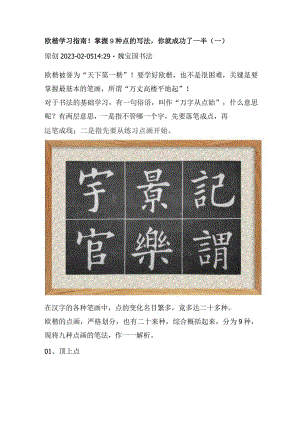 欧楷学习指南！掌握9种点的写法，你就成功了一半（一）
原创2023-02-0514:29·魏宝国书法
欧楷被誉为“天下第一楷”！要学好欧楷，也不是很难，关键是要
掌握最基本的笔画，所谓“万丈高楼平地起”！
对于书法的基础学习，有一句俗语，叫作“万字从点始”，什么意思
呢？有两层意思，一是指不管哪一个字，先要落笔成点，再
运笔成线；二是指先要从练习点画开始。
宇景記
官樂謂
在汉字的各种笔画中，点的变化名目繁多，竟多达二十多种。
欧楷的点画，严格划分，也有二十来种，综合概括起来，分为9种，
现将九种点画的笔法，作一一解析。
01、顶上点